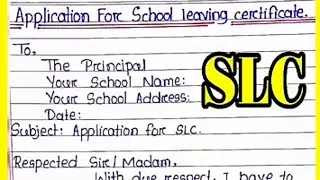 Application For School leaving certificate.
To,
The Principal
Your School Name:
Your School Address:
Date:
SLC
Subject: Application for SLC.
Respected Sir/Madam,
With due respect, I have to